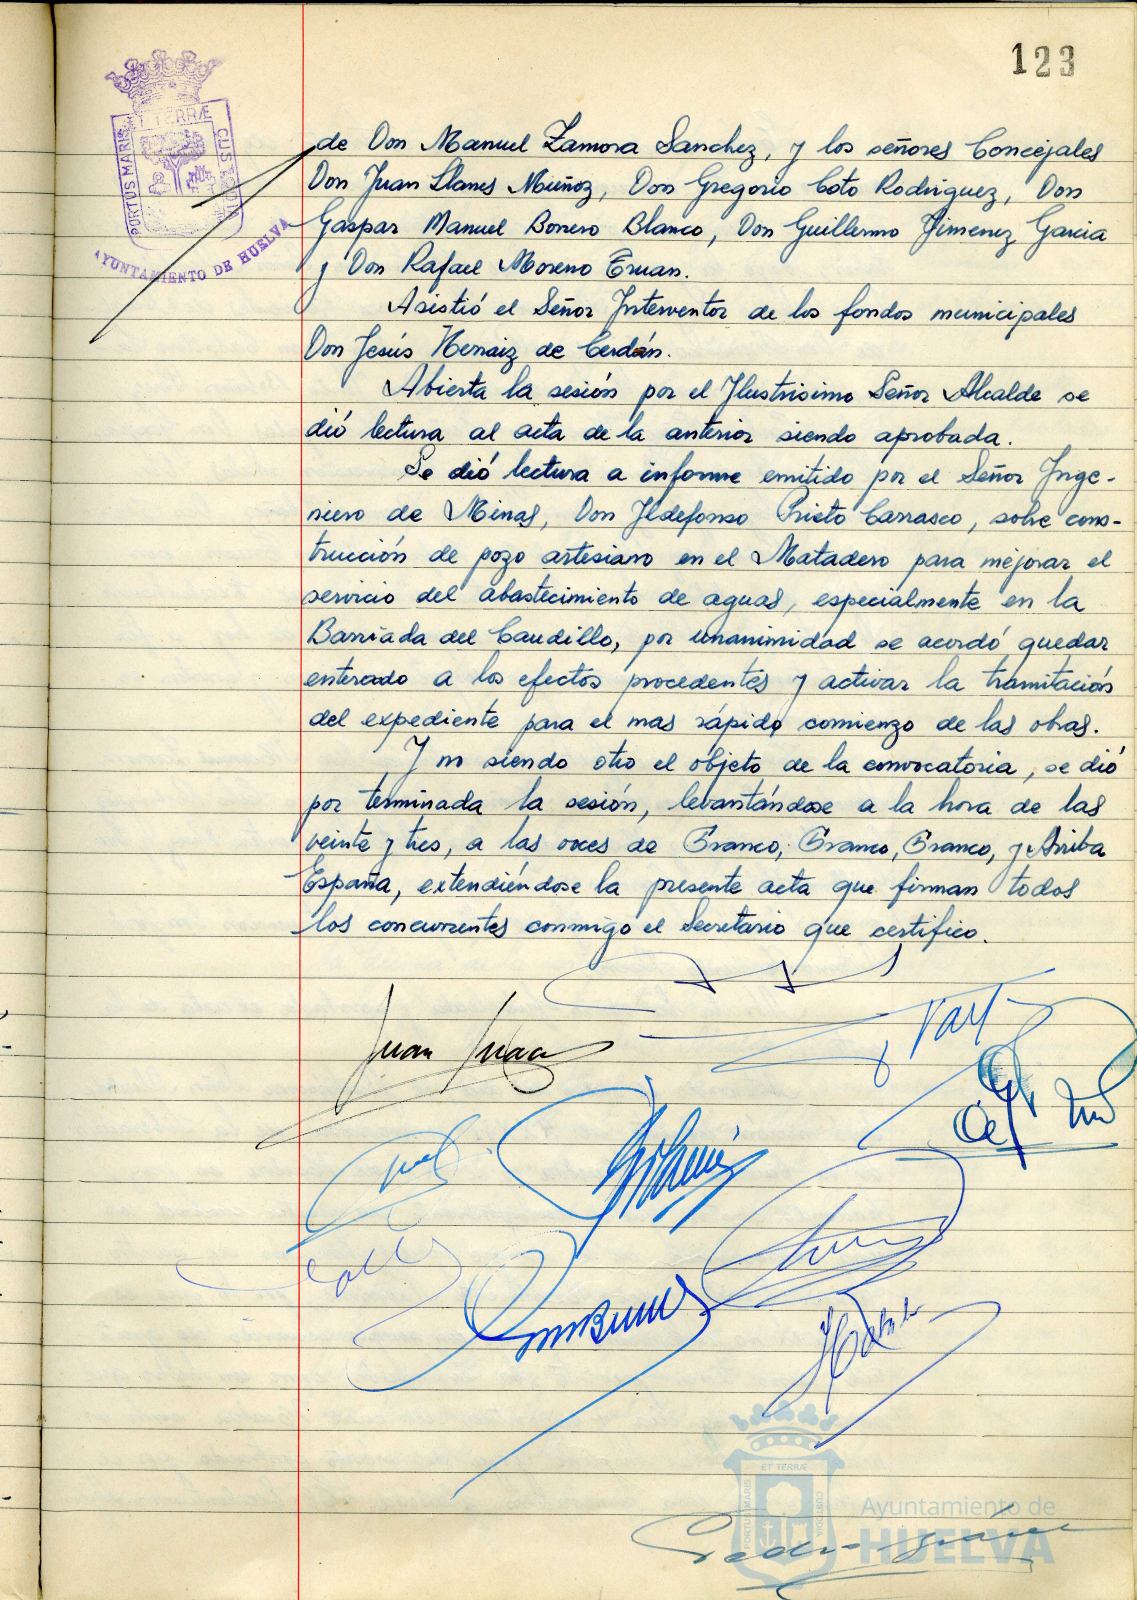 123
PORTUS MARIS ET TERRÆ CUSTODIA
AYUNTAMIENTO DE HUELVA
de Don Manuel Zamora Sanchez, y los señores Concejales
Don Juan Llanes Muñoz, Don Gregorio Coto Rodriguez, Don
Gaspar Manuel Borrero Blanco, Don Guillermo Jimenez Garcia
y Don Rafael Moreno
Asistió el Señor Interventor de los fondos municipales
Don Jesús de Cerdán.
Abierta la sesión por el Ilustrisimo Señor Alcalde se
dió lectura al acta de la anterior siendo aprobada.
Se dió lectura a informe emitido por el Señor Inge-
niero de Minas, Don Ildefonso Prieto Carrasco, sobre cons-
trucción de pozo artesiano en el Matadero para mejorar el
servicio del abastecimiento de aguas, especialmente en la
Barriada del Caudillo, por unanimidad se acordó quedar
enterado a los efectos procedentes y activar la tramitación
del expediente para el mas rápido comienzo de las obras.
Y no siendo otro el objeto de la convocatoria, se dió
por terminada la sesión, levantándose a la hora de las
veinte y tres, a las voces de Franco, Franco, Franco, y Arriba
España, extendiéndose la presente acta que firman todos
los concurrentes conmigo el Secretario que certifico.
Juan
PORTUS MARIS ET TERRÆ CUSTODIA
Ayuntamiento de
HUELVA
Pedro